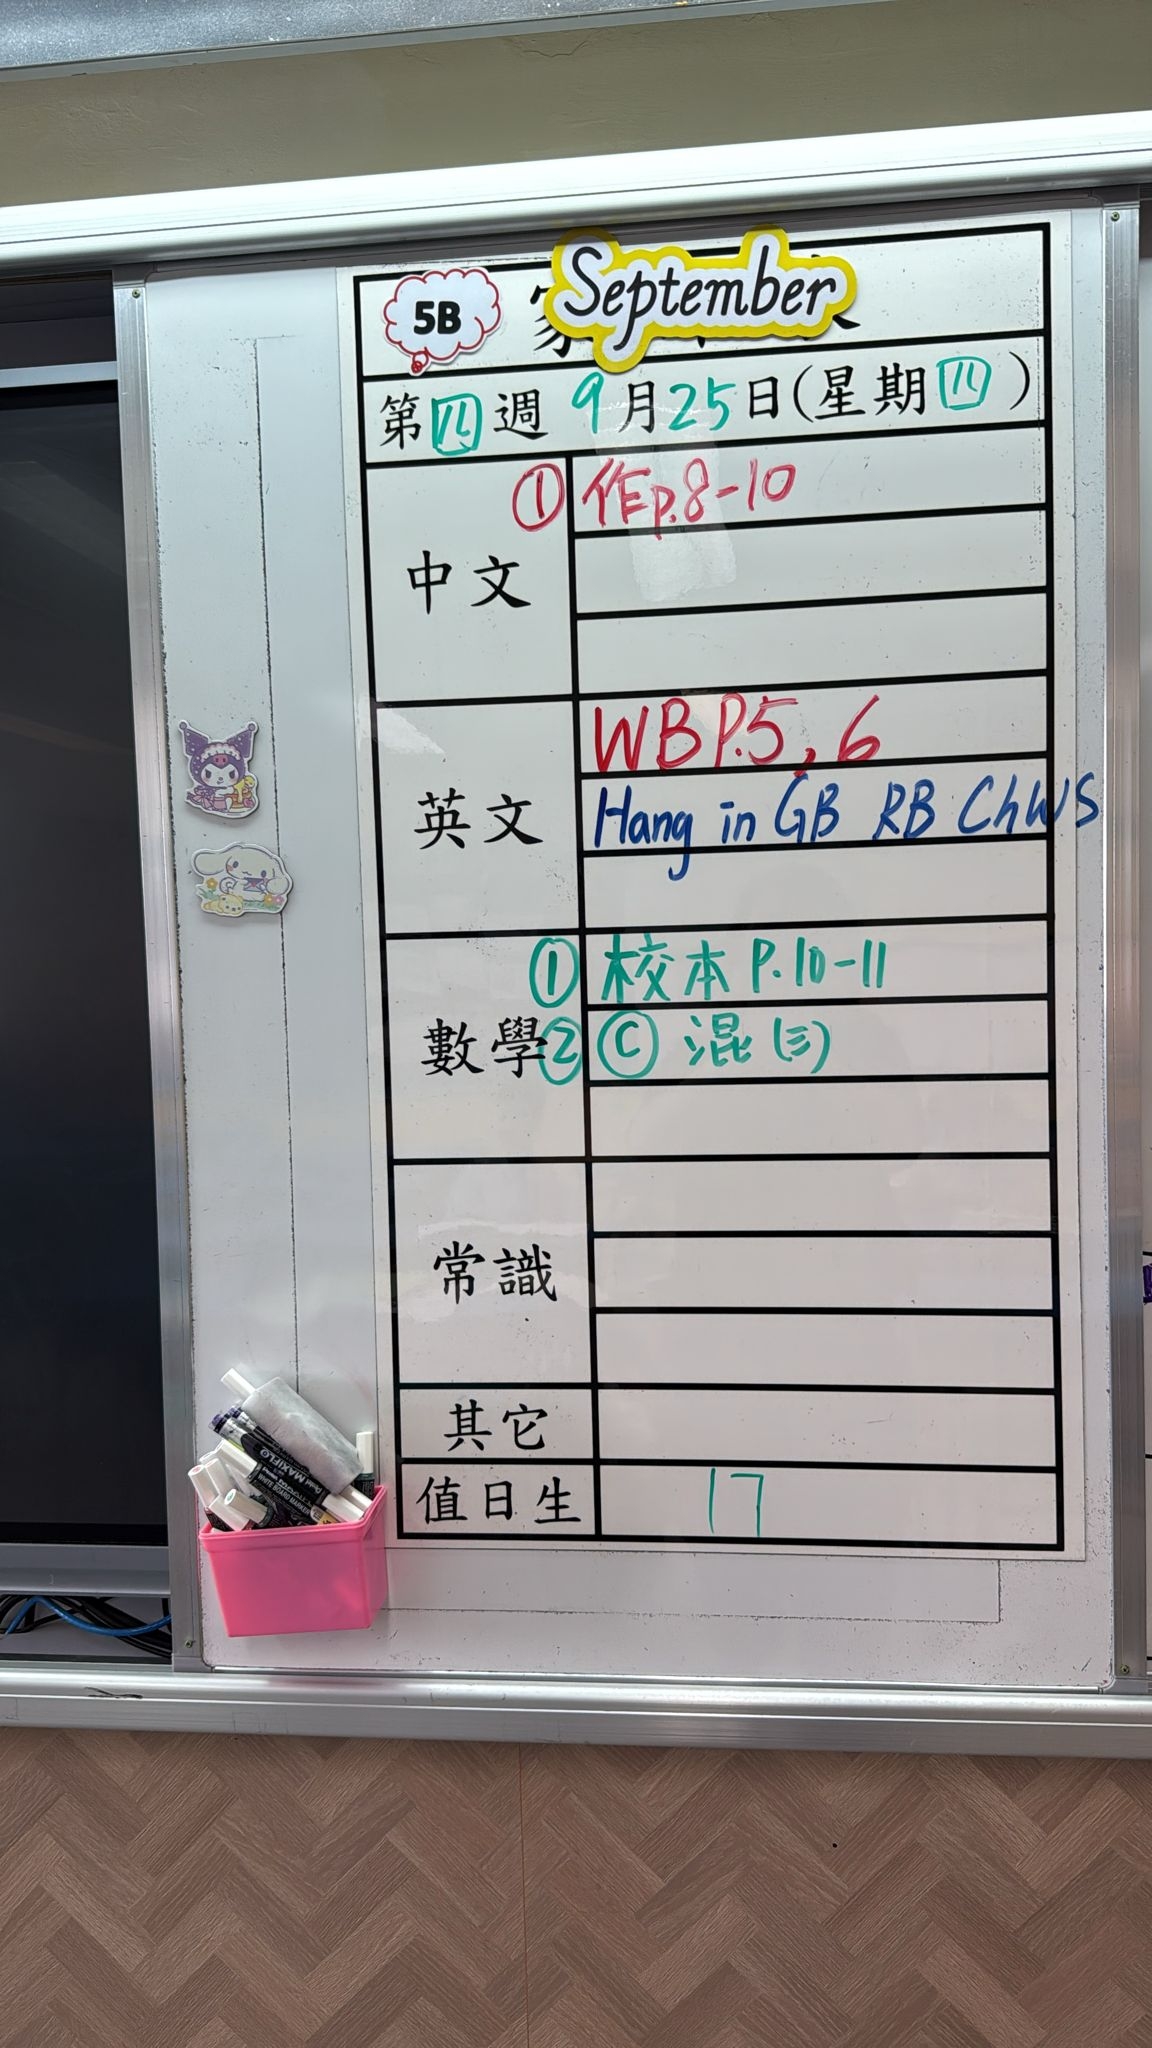 5B
September
第四週 9月25日(星期四)
中文
① 作 p.8-10
英文
WB P.5, 6
Hang in GB RB Ch WS
數學
① 校本 P.10-11
② Ⓒ 混(三)
常識
其它
值日生
17
MAXIFLO
WHITE BOARD MARKER